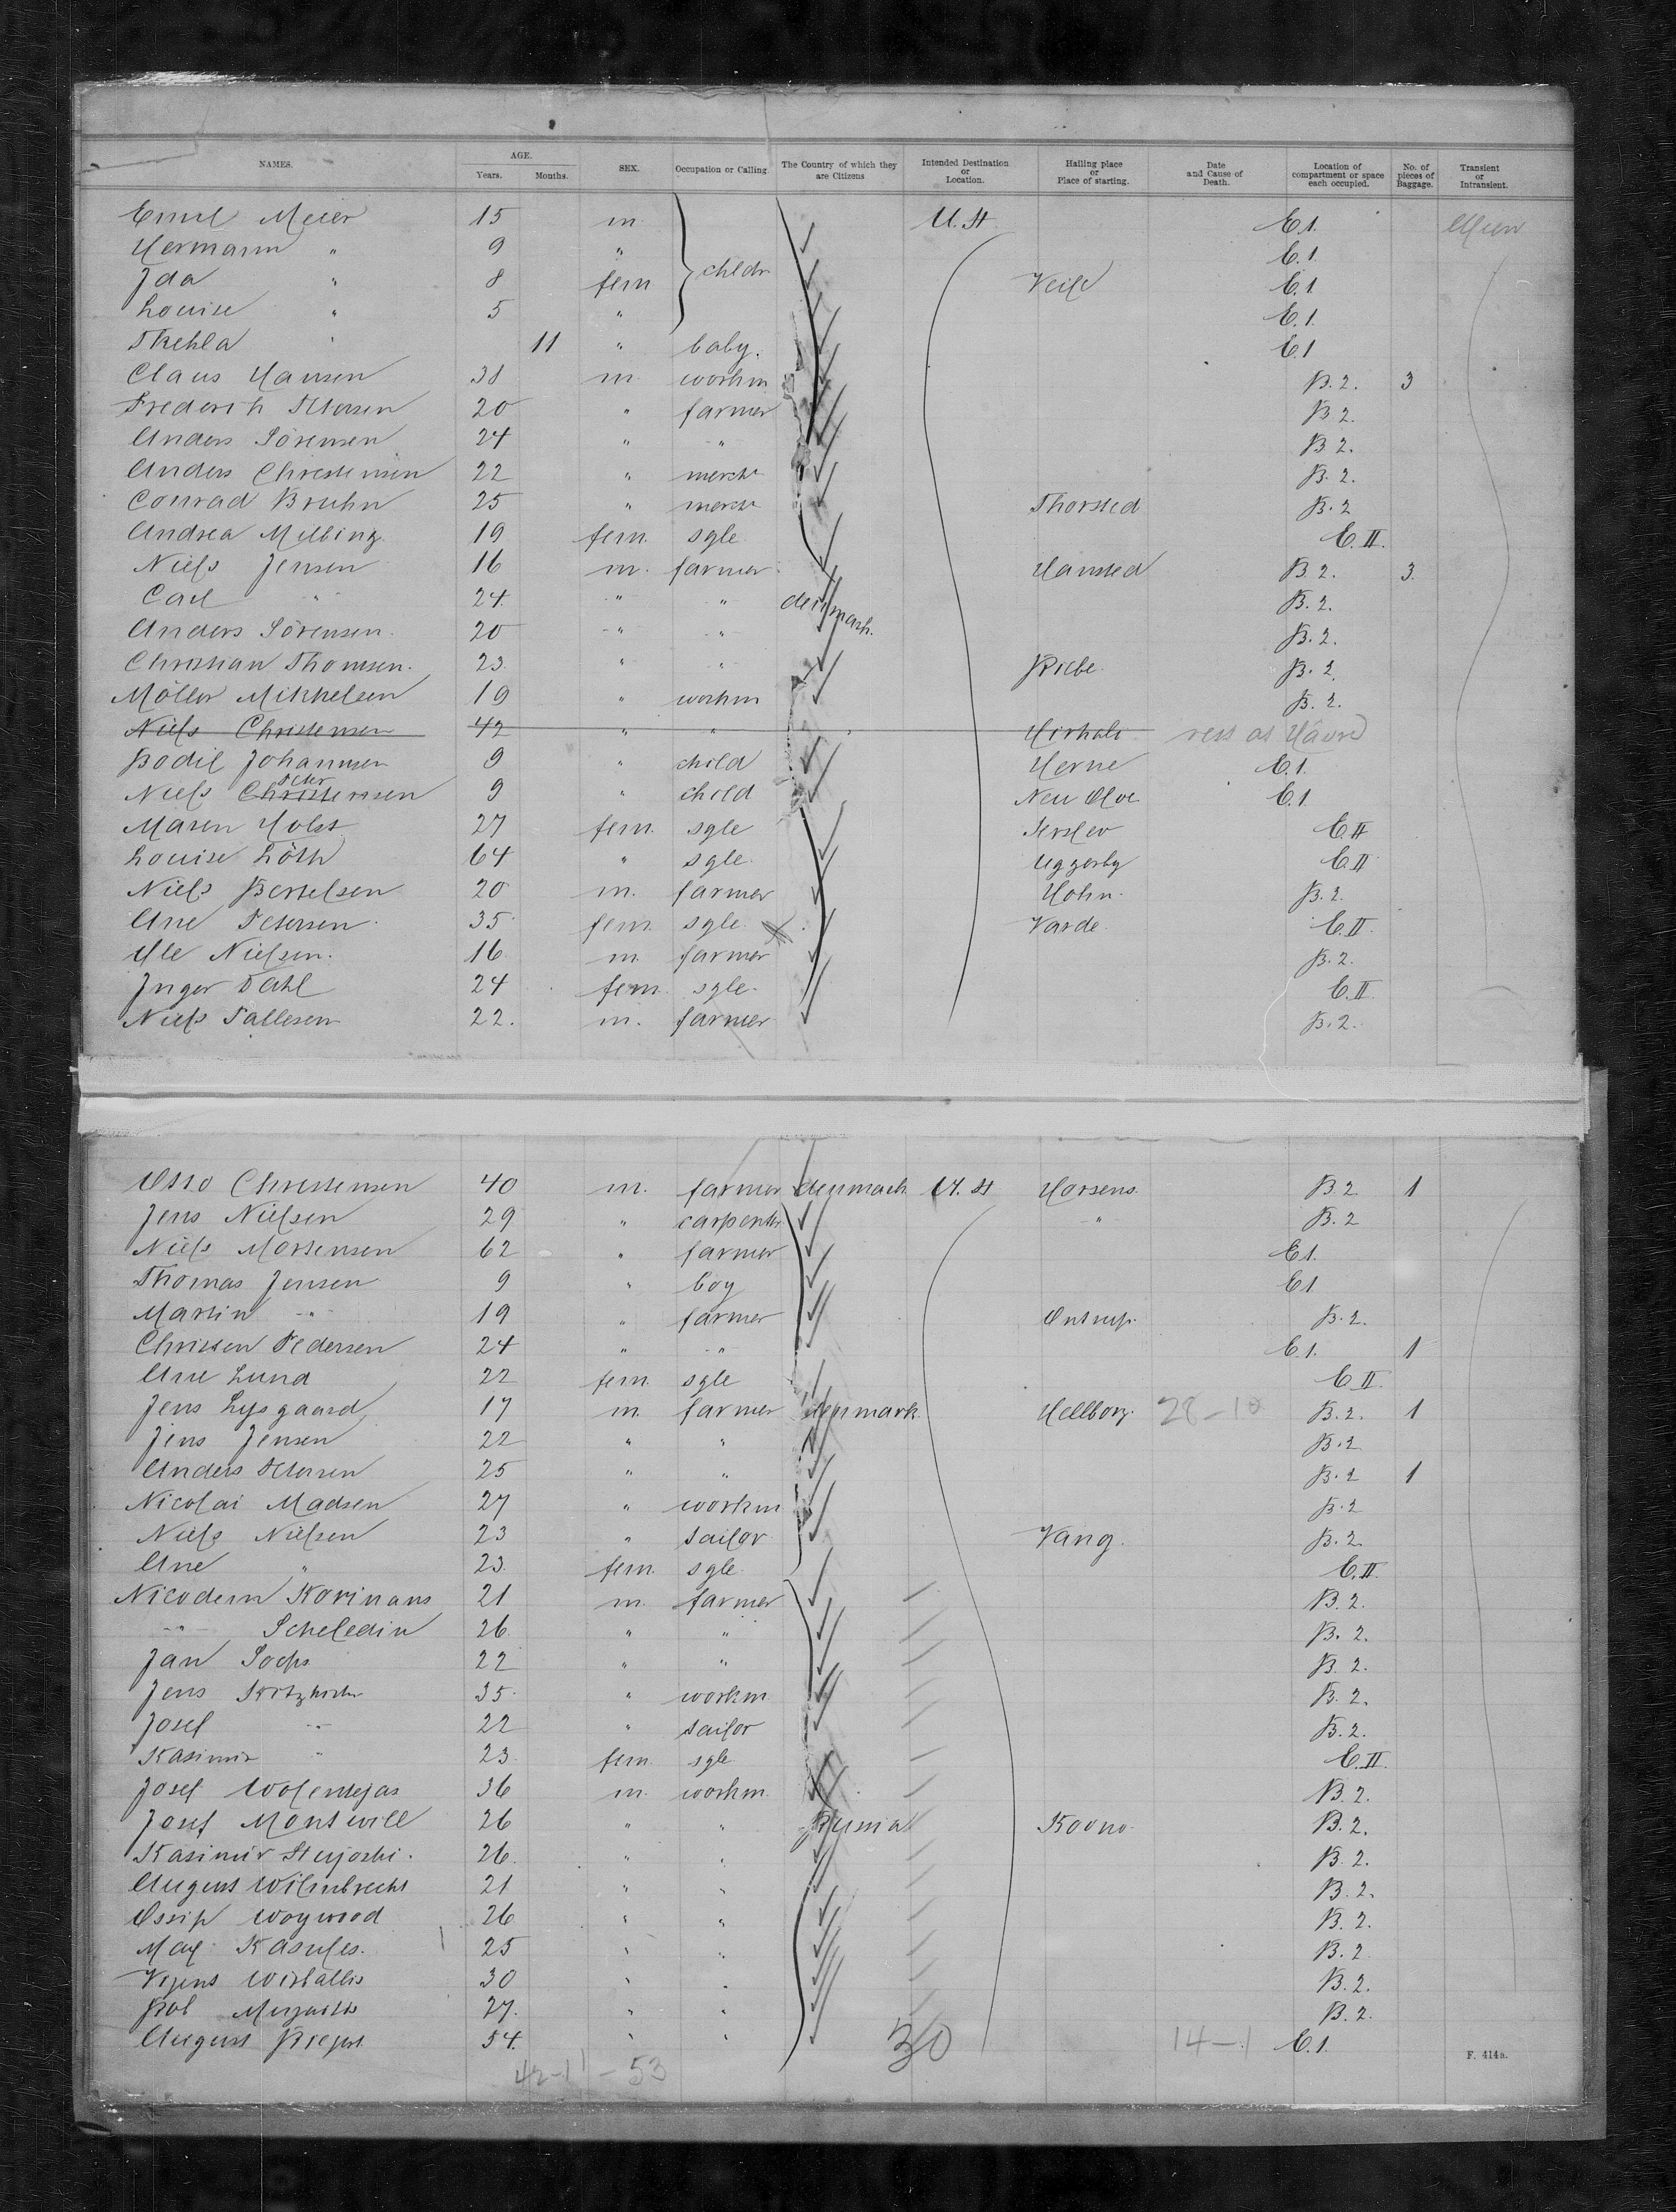 NAMES. AGE. Years. Months. SEX. Occupation or Calling The Country of which they are Citizens Intended Destination or Location. Hailing place or Place of starting. Date and Cause of Death. Location of compartment or space each occupied. No. of pieces of Baggage. Transient or Intransient.
Emil Meier 15 m U. St E1.
Hermann " 9 " E.1.
Ida " 8 fem childr Veile E1
Louise " 5 " E.1.
Thekla " 11 " baby. E1
Claus Hansen 38 m. workm B. 2. 3
Frederich Petersen 20 " farmer B 2.
Anders Sörensen 24 " " B 2.
Anders Christensen 22 " mercht B. 2.
Conrad Bruhn 25 " mercht Thorsted B. 2
Andrea Milbing 19 fem. sgle E. II.
Niels Jensen 16 m. farmer Hansted B. 2. 3.
Carl " 24. " " denmark. B. 2.
Anders Sörensen. 20 " " B. 2.
Christian Thomsen. 23. " " Riebe B. 2.
Möller Mikkelsen 19 " workm B. 2.
Niels Christensen 42 " " " Hirhals
Bodil Johannsen 9 " child Herne E.1.
Niels Christensen Peter 9 " child Neu E.1
Maren Holst 27 fem. sgle Terslev E II
Louise Löth 64 " sgle. Uggerby E. II
Niels Bertelsen 20 m. farmer Hohn. B. 2.
Ane Petersen. 35. fem. sgle. Varde. E. II.
Ole Nielsen. 16. m. farmer B. 2.
Inger Dahl 24 fem. sgle. E. II
Niels Pallesen 22. m. farmer B. 2.
Otto Christensen 40 m. farmer denmark U. St Horsens. B 2. 1
Jens Nielsen 29 " carpenter " B. 2
Niels Mortensen 62 " farmer E1.
Thomas Jensen 9 " boy E1
Martin " 19 " farmer Ontrup. B. 2.
Christen Pedersen 24 " " E.1. 1
Ane Lund 22 fem. sgle E II.
Jens Lysgaard 17 m. farmer denmark Hellborg. 28-10 B. 2. 1
Jens Jensen 22 " " B. 2
Anders Petersen 25 " " B. 2 1
Nicolai Madsen 27 " workm B. 2
Niels Nielsen 23 " sailor Vang. B. 2.
Ane " 23. fem. sgle. E. II.
Nicodem Korinans 21 m. farmer B. 2.
" Scheledin 26. " " B. 2.
Jan 22 " " B. 2.
Jens 35. " workm B. 2.
Josef " 22 " sailor B. 2.
Kasimir " 23. fem. sgle. E. II.
Josef Wolentejas 36 m. workm. B. 2.
Josef Montwill 26 " " Russia Kovno. B. 2.
Kasimir 26. " " B. 2.
August Wilmbrecht 21 " " B. 2.
Ossip Woywood 26 " " B. 2.
Max Kasules. 25 " " B. 2.
Wistallis 30 " " B. 2.
27. " " B. 2.
August 54. " " 30 14-1 E.1.
42-11-53
F. 414a.